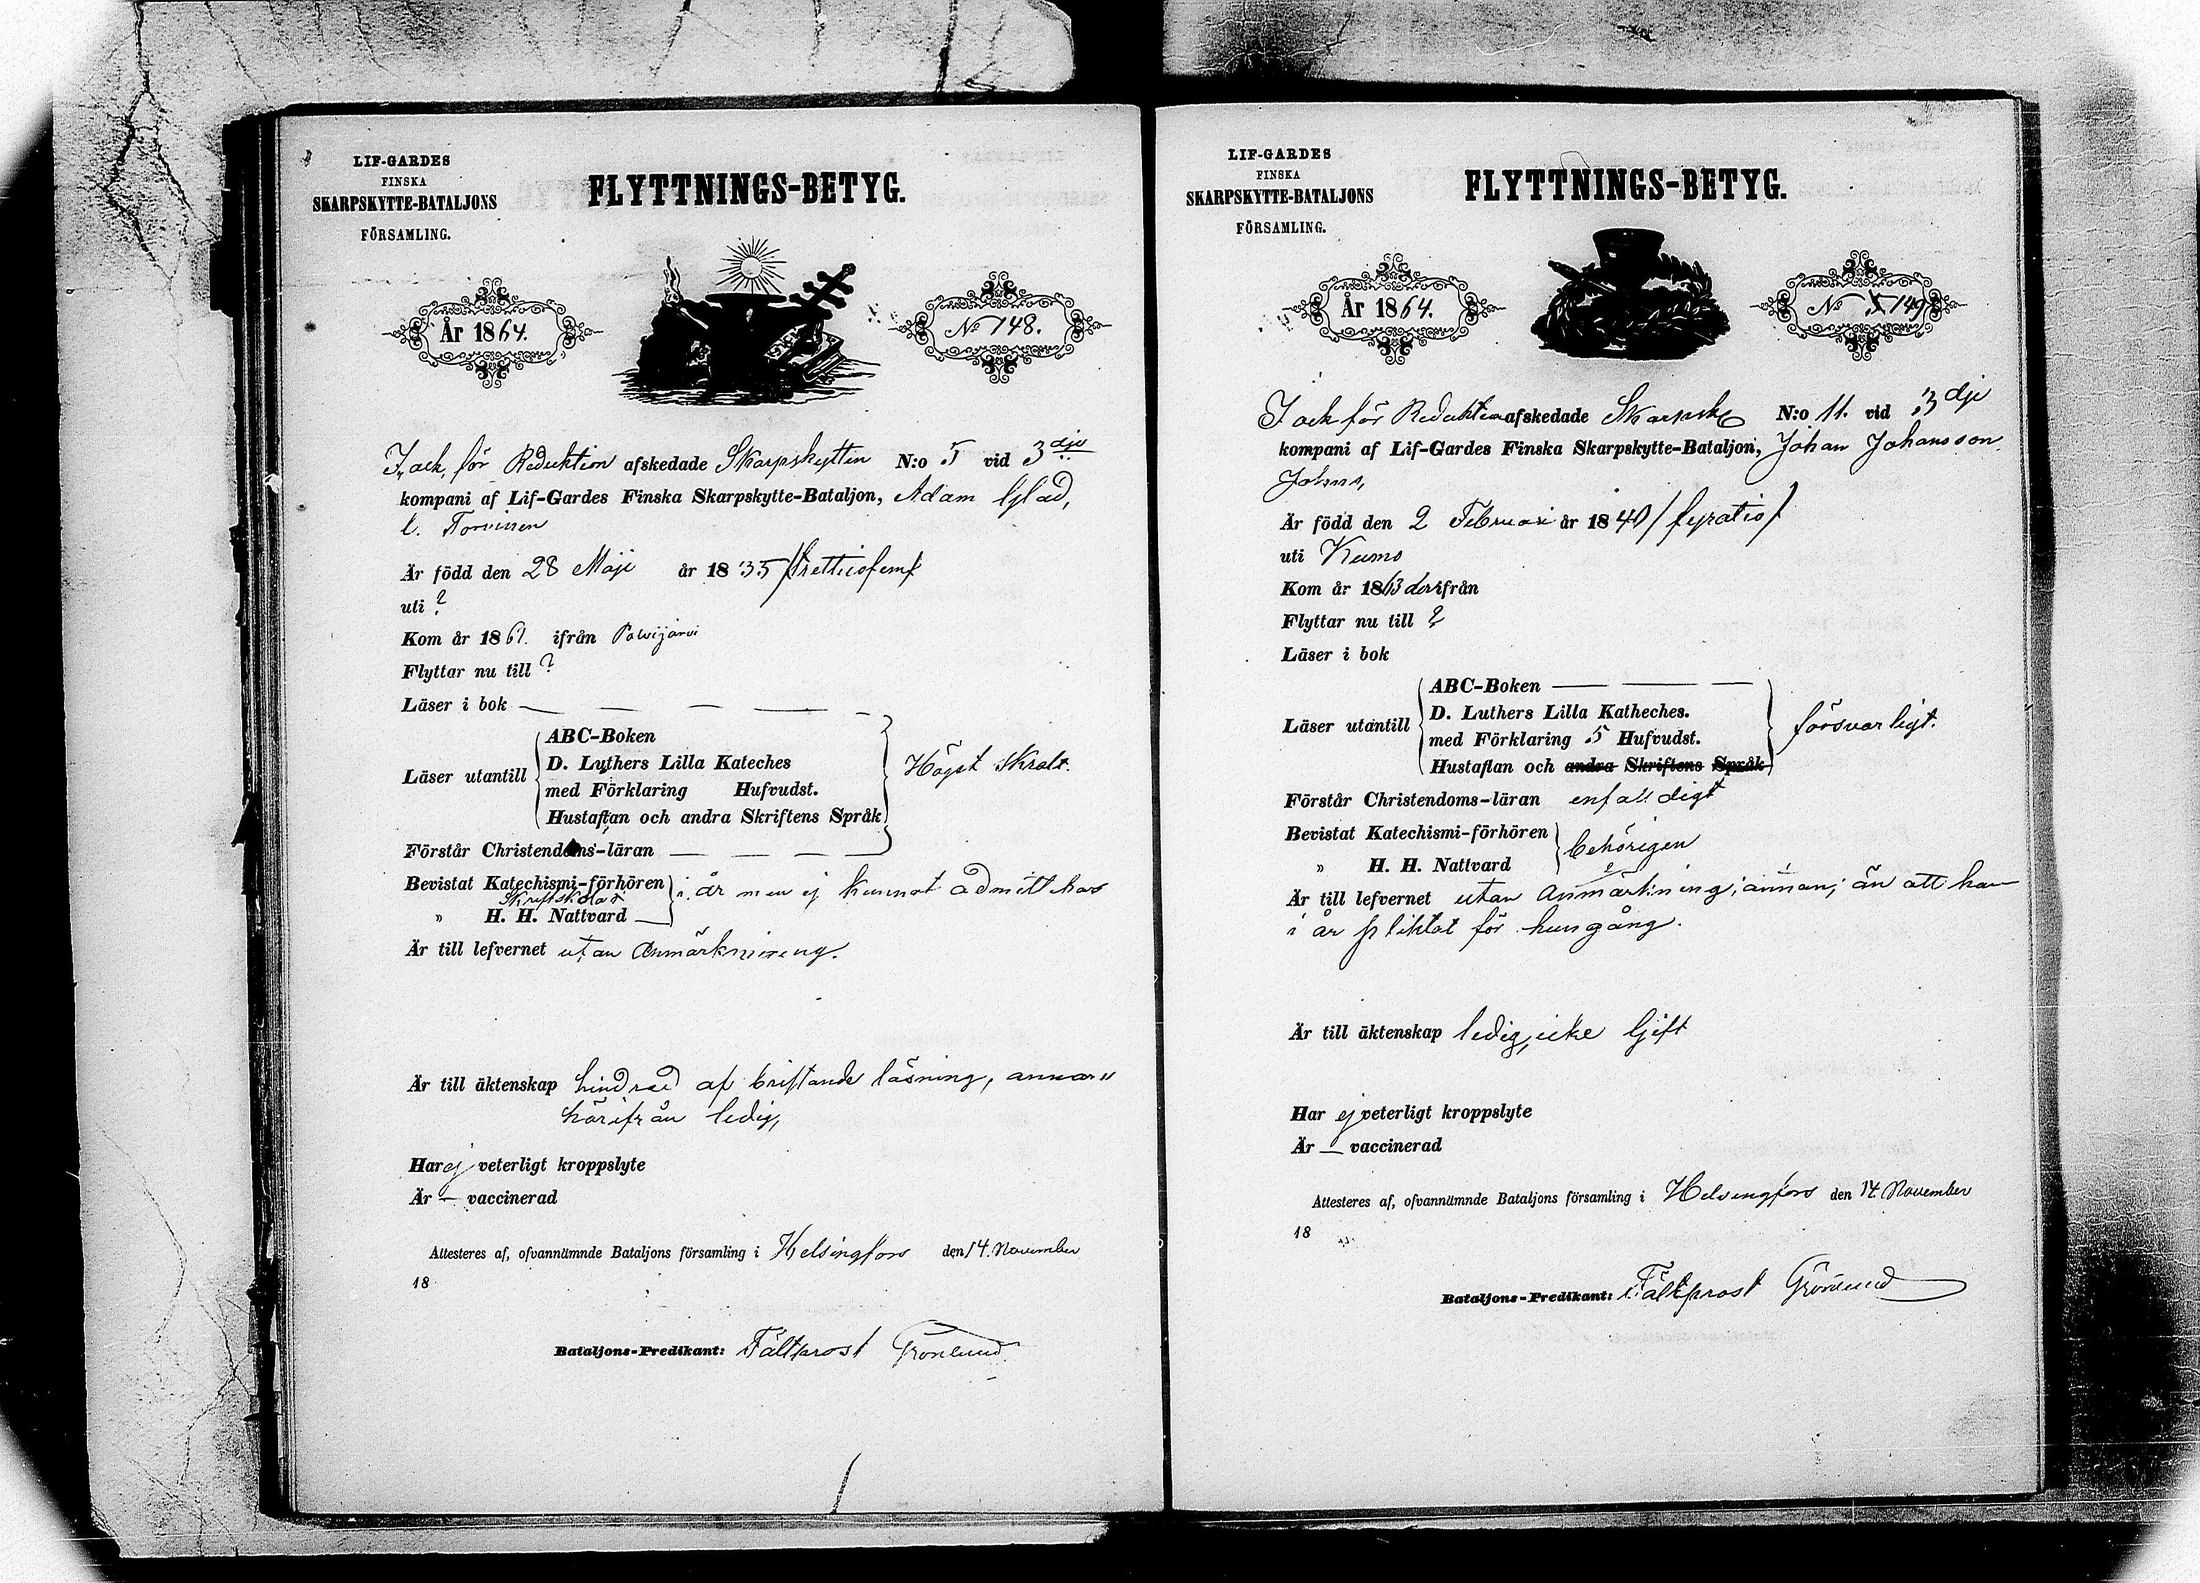 LIF-GARDES
FINSKA
SKARPSKYTTE-BATALJONS
FÖRSAMLING.
FLYTTNINGS-BETYG.
År 1864.
No 148.
I, och för Reduktion afskedade Skarpskytten N:o 5 vid 3dje
kompani af Lif-Gardes Finska Skarpskytte-Bataljon, Adam Glad,
l. Torvinen
Är född den 28 Maji år 1835 /trettiofem/
uti ?
Kom år 1861. ifrån Polvijärvi
Flyttar nu till ?
Läser i bok — — — — —
Läser utantill
ABC-Boken
D. Luthers Lilla Kateches
med Förklaring Hufvudst.
Hustaflan och andra Skriftens Språk
Högst Skralt.
Förstår Christendoms-läran — — — —
Bevistat Katechismi-förhören i år men ej kunnat admitteras
Skriftskolan
„ H. H. Nattvard —
Är till lefvernet utan Anmärkning.
Är till äktenskap hindrad af bristande läsning, annars
härifrån ledig,
Har ej veterligt kroppslyte
Är — vaccinerad
Attesteres af, ofvannämnde Bataljons församling i Helsingfors den 14. November
18
Bataljons-Predikant: Fältprost Grönlund.
LIF-GARDES
FINSKA
SKARPSKYTTE-BATALJONS
FÖRSAMLING.
FLYTTNINGS-BETYG.
År 1864.
No 149
I och för Reduktion afskedade Skarpsk N:o 11. vid 3dje
kompani af Lif-Gardes Finska Skarpskytte-Bataljon, Johan Johansson
Johns,
Är född den 2 Februari år 1840 /fyratio/
uti Kumo
Kom år 1863 derifrån
Flyttar nu till ?
Läser i bok
Läser utantill
ABC-Boken — — —
D. Luthers Lilla Katheches.
med Förklaring 5 Hufvudst.
Hustaflan och andra Skriftens Språk
försvarligt.
Förstår Christendoms-läran enfaldigt
Bevistat Katechismi-förhören
„ H. H. Nattvard
behörigen
Är till lefvernet utan Anmärkning; annan; än att han
i år pliktat för hungång.
Är till äktenskap ledig, icke Gift
Har ej veterligt kroppslyte
Är — vaccinerad
Attesteres af, ofvannämnde Bataljons församling i Helsingfors den 14. November
18
Bataljons-Predikant: Fältprost Grönlund